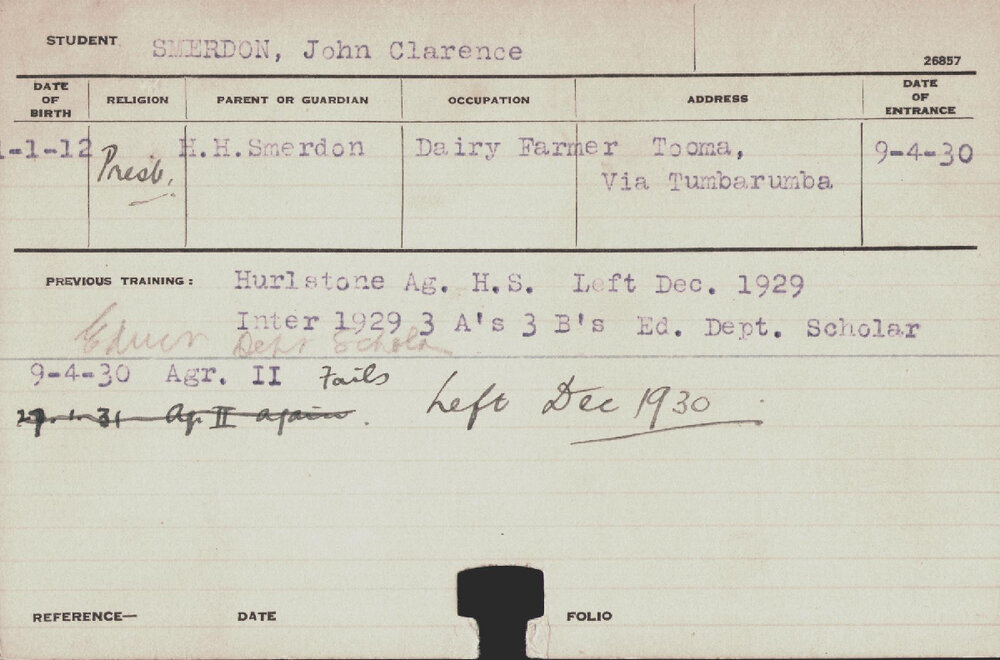 STUDENT SMERDON, John Clarence
26857
DATE OF BIRTH RELIGION PARENT OR GUARDIAN OCCUPATION ADDRESS DATE OF ENTRANCE
1-1-12 Presb. H.H.Smerdon Dairy Farmer Tooma, 9-4-30
Via Tumbarumba
PREVIOUS TRAINING: Hurlstone Ag. H.S. Left Dec. 1929
Inter 1929 3 A's 3 B's Ed. Dept. Scholar
Educn Dept Schola
9-4-30 Agr. II Fails
Left Dec 1930
29.1.31 Ag. II again.
REFERENCE— DATE FOLIO